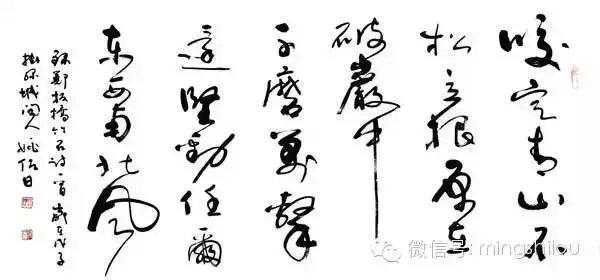 咬定青山不
松立根原在
破巖中
千磨萬擊
還堅勁任爾
東西南北風
録鄭板橋竹石詩一首 歲在戊子
微信号: mingshilou